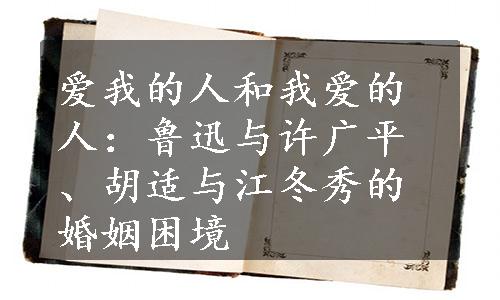 爱我的人和我爱的
人：鲁迅与许广平
、胡适与江冬秀的
婚姻困境